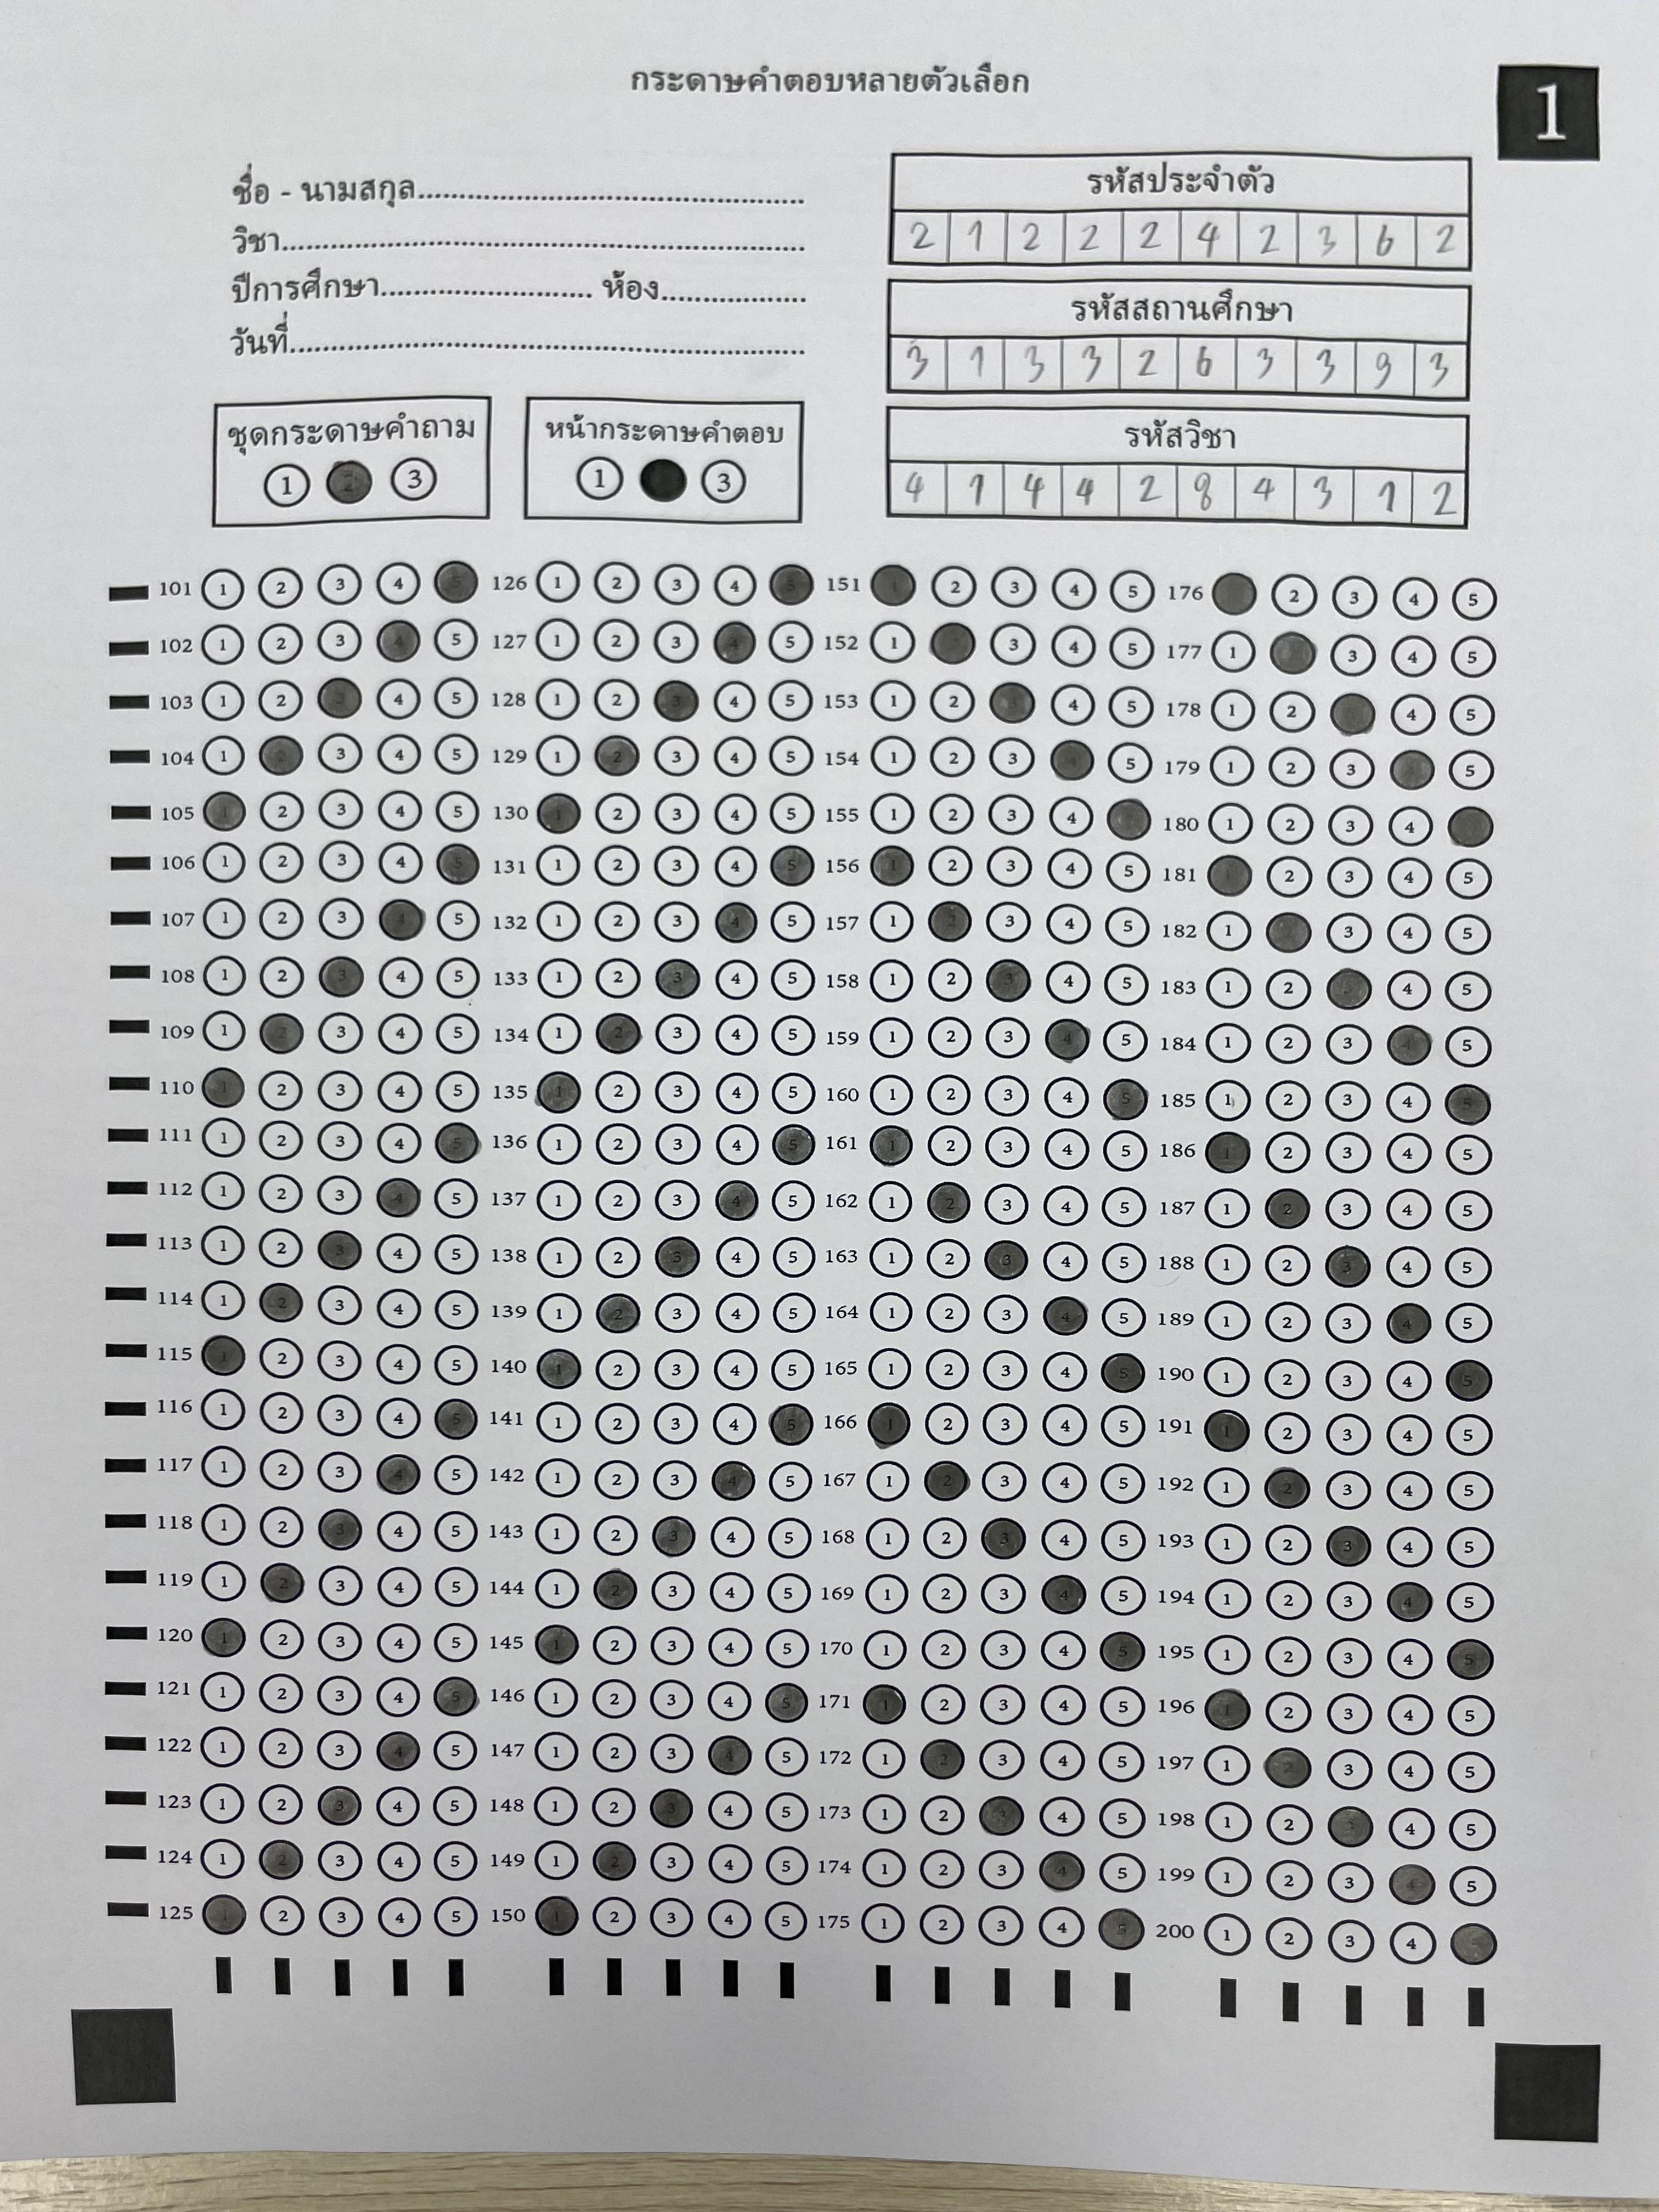 กระดาษคำตอบหลายตัวเลือก
1
ชื่อ - นามสกุล
วิชา
ปีการศึกษา ห้อง
วันที่
รหัสประจำตัว
2 1 2 2 2 4 2 3 6 2
รหัสสถานศึกษา
3 1 3 3 2 6 3 3 9 3
รหัสวิชา
4 1 4 4 2 8 4 3 1 2
ชุดกระดาษคำถาม
1 2 3
หน้ากระดาษคำตอบ
1 3
101 1 2 3 4 5 126 1 2 3 4 5 151 1 2 3 4 5 176 2 3 4 5
102 1 2 3 4 5 127 1 2 3 4 5 152 1 3 4 5 177 1 3 4 5
103 1 2 3 4 5 128 1 2 3 4 5 153 1 2 3 4 5 178 1 2 4 5
104 1 2 3 4 5 129 1 2 3 4 5 154 1 2 3 4 5 179 1 2 3 4 5
105 1 2 3 4 5 130 1 2 3 4 5 155 1 2 3 4 180 1 2 3 4
106 1 2 3 4 5 131 1 2 3 4 5 156 1 2 3 4 5 181 2 3 4 5
107 1 2 3 4 5 132 1 2 3 4 5 157 1 2 3 4 5 182 1 2 3 4 5
108 1 2 3 4 5 133 1 2 3 4 5 158 1 2 3 4 5 183 1 2 3 4 5
109 1 2 3 4 5 134 1 2 3 4 5 159 1 2 3 4 5 184 1 2 3 4 5
110 1 2 3 4 5 135 1 2 3 4 5 160 1 2 3 4 5 185 1 2 3 4 5
111 1 2 3 4 5 136 1 2 3 4 5 161 1 2 3 4 5 186 1 2 3 4 5
112 1 2 3 4 5 137 1 2 3 4 5 162 1 2 3 4 5 187 1 2 3 4 5
113 1 2 3 4 5 138 1 2 3 4 5 163 1 2 3 4 5 188 1 2 3 4 5
114 1 2 3 4 5 139 1 2 3 4 5 164 1 2 3 4 5 189 1 2 3 4 5
115 1 2 3 4 5 140 1 2 3 4 5 165 1 2 3 4 5 190 1 2 3 4 5
116 1 2 3 4 5 141 1 2 3 4 5 166 1 2 3 4 5 191 1 2 3 4 5
117 1 2 3 4 5 142 1 2 3 4 5 167 1 2 3 4 5 192 1 2 3 4 5
118 1 2 3 4 5 143 1 2 3 4 5 168 1 2 3 4 5 193 1 2 3 4 5
119 1 2 3 4 5 144 1 2 3 4 5 169 1 2 3 4 5 194 1 2 3 4 5
120 1 2 3 4 5 145 1 2 3 4 5 170 1 2 3 4 5 195 1 2 3 4 5
121 1 2 3 4 5 146 1 2 3 4 5 171 1 2 3 4 5 196 1 2 3 4 5
122 1 2 3 4 5 147 1 2 3 4 5 172 1 2 3 4 5 197 1 2 3 4 5
123 1 2 3 4 5 148 1 2 3 4 5 173 1 2 3 4 5 198 1 2 3 4 5
124 1 2 3 4 5 149 1 2 3 4 5 174 1 2 3 4 5 199 1 2 3 4 5
125 1 2 3 4 5 150 1 2 3 4 5 175 1 2 3 4 5 200 1 2 3 4 5